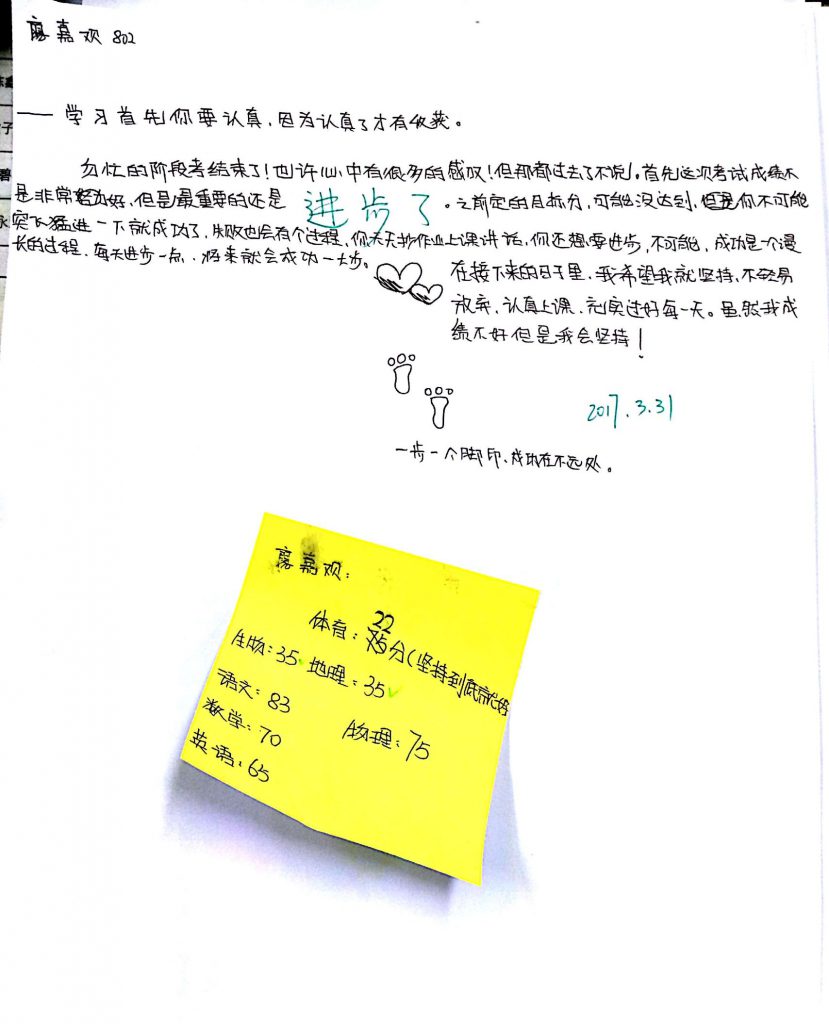 廖嘉欢 802
—— 学习首先你要认真，因为认真了才有收获。
匆忙的阶段考结束了！也许心中有很多的感叹！但那都过去了不说！首先这次考试成绩不
是非常好，但是最重要的还是 进步了。之前定的目标分，可能没达到，但是你不可能
突飞猛进一下就成功了，失败也会有个过程，你天天抄作业上课讲话，你还想要进步，不可能，成功是一个漫
长的过程，每天进步一点，将来就会成功一大步。
在接下来的日子里，我希望我就坚持，不轻易
放弃，认真上课，充实过好每一天。虽然我成
绩不好但是我会坚持！
2017.3.31
一步一个脚印，成功在不远处。
廖嘉欢：
体育：22分（坚持到底就好
生物：35 地理：35
语文：83
数学：70 物理：75
英语：65